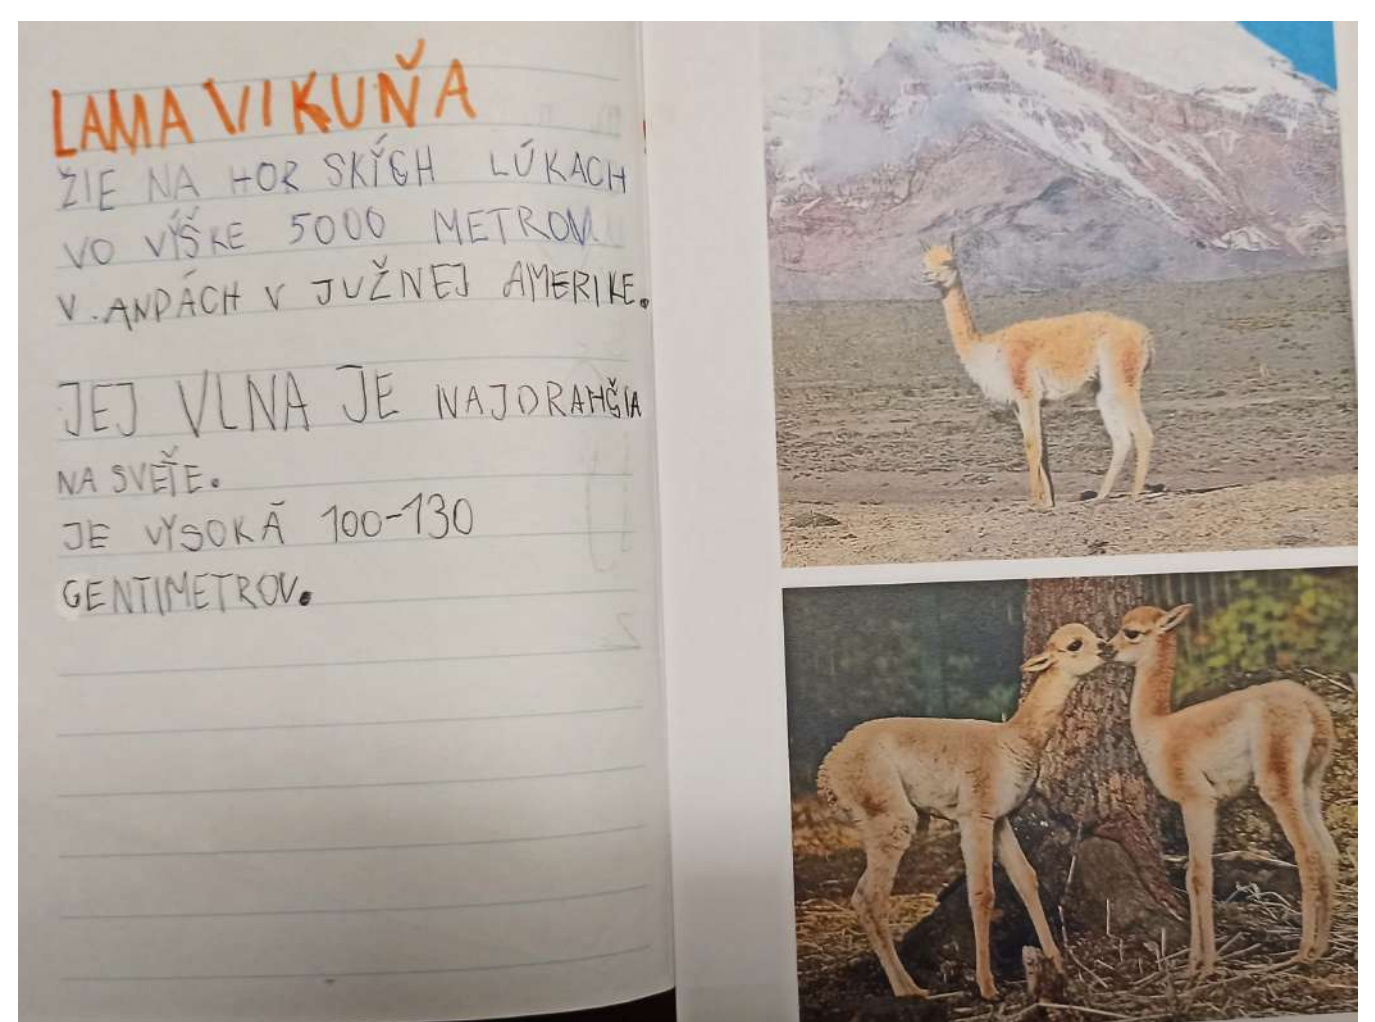 LAMA VIKUŇA
ŽIE NA HORSKÝCH LÚKACH
VO VÝŠKE 5000 METROV
V ANDÁCH V JUŽNEJ AMERIKE.
JEJ VLNA JE NAJDRAHŠIA
NA SVEŤE.
JE VYSOKÁ 100-130
CENTIMETROV.